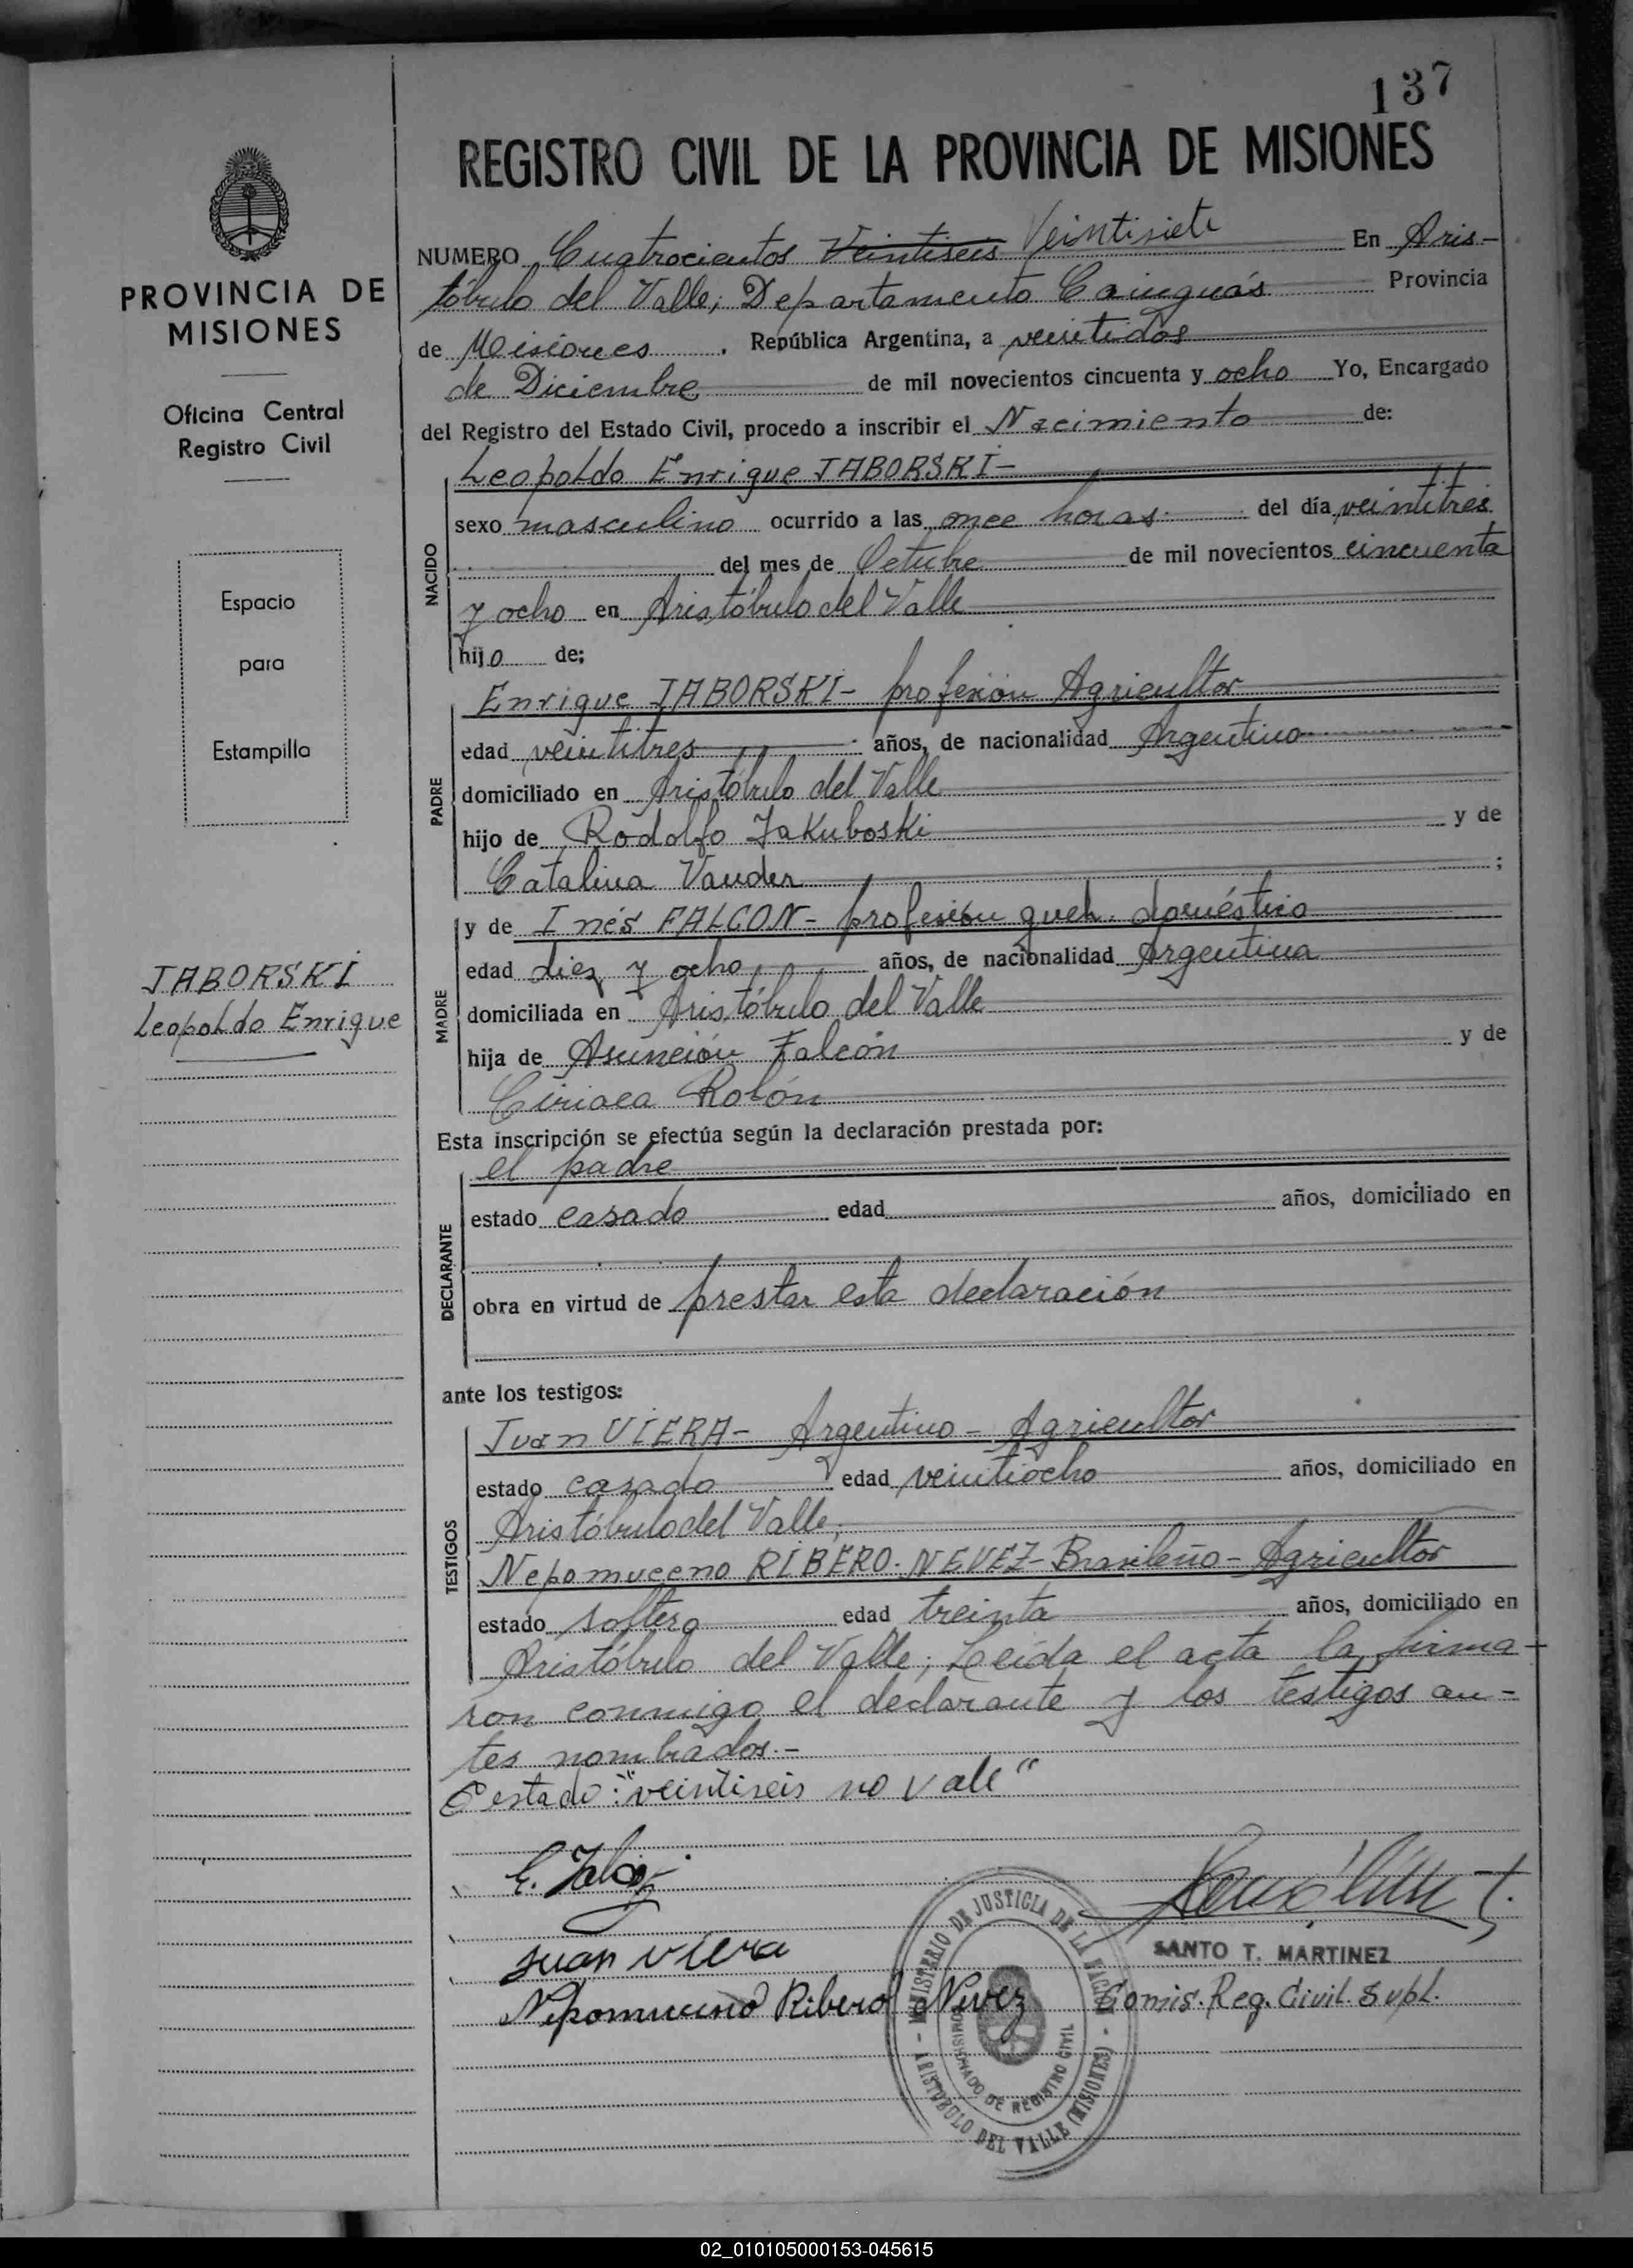 137
REGISTRO CIVIL DE LA PROVINCIA DE MISIONES
PROVINCIA DE
MISIONES
Oficina Central
Registro Civil
Espacio
para
Estampilla
JABORSKI
Leopoldo Enrique
NUMERO Cuatrocientos Veintiseis Veintisiete En Aris-
tóbulo del Valle; Departamento Cainguás Provincia
de Misiones . República Argentina, a veintidos
de Diciembre de mil novecientos cincuenta y ocho Yo, Encargado
del Registro del Estado Civil, procedo a inscribir el Nacimiento de:
NACIDO
Leopoldo Enrique JABORSKI-
sexo masculino ocurrido a las once horas del día veintitres
del mes de Octubre de mil novecientos cincuenta
y ocho en Aristóbulo del Valle
hijo de;
PADRE
Enrique JABORSKI- profesión Agricultor
edad veintitres años, de nacionalidad Argentino
domiciliado en Aristóbulo del Valle
hijo de Rodolfo Jakuboski y de
Catalina Vander ;
MADRE
y de Inés FALCON- profesión queh. doméstico
edad diez y ocho años, de nacionalidad Argentina
domiciliada en Aristóbulo del Valle
hija de Asunción Falcón y de
Ciriaca Rolón
Esta inscripción se efectúa según la declaración prestada por:
DECLARANTE
el padre
estado casado edad años, domiciliado en
obra en virtud de prestar esta declaración
ante los testigos:
TESTIGOS
Juan VIERA- Argentino - Agricultor
estado casado edad veintiocho años, domiciliado en
Aristóbulo del Valle;
Nepomuceno RIBERO-NEVEZ- Brasileño - Agricultor
estado soltero edad treinta años, domiciliado en
Aristóbulo del Valle; Leída el acta la firma-
ron conmigo el declarante y los testigos an-
tes nombrados.-
"veintiseis no vale"
Juan Viera
Nepomuceno Ribero Nevez
SANTO T. MARTINEZ
Comis. Reg. Civil Supl.
MINISTERIO DE JUSTICIA DE LA NACION
DE REGISTRO CIVIL
- ARISTOBULO DEL VALLE (MISIONES) -
02_010105000153-045615